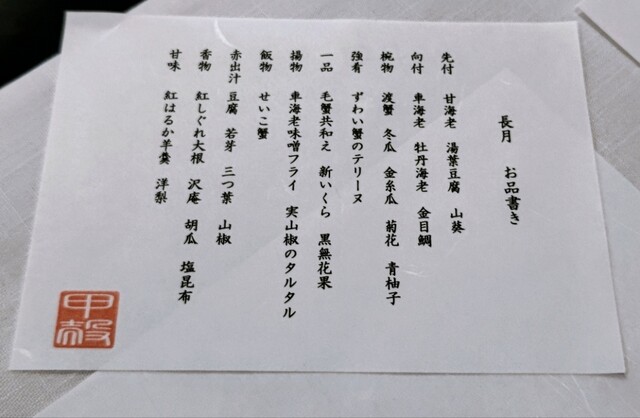 長月 お品書き
先付 甘海老 湯葉豆腐 山葵
向付 車海老 牡丹海老 金目鯛
椀物 渡蟹 冬瓜 金糸瓜 菊花 青柚子
強肴 ずわい蟹のテリーヌ
一品 毛蟹共和え 新いくら 黒無花果
揚物 車海老味噌フライ 実山椒のタルタル
飯物 せいこ蟹
赤出汁 豆腐 若芽 三つ葉 山椒
香物 紅しぐれ大根 沢庵 胡瓜 塩昆布
甘味 紅はるか羊羹 洋梨
甲殻